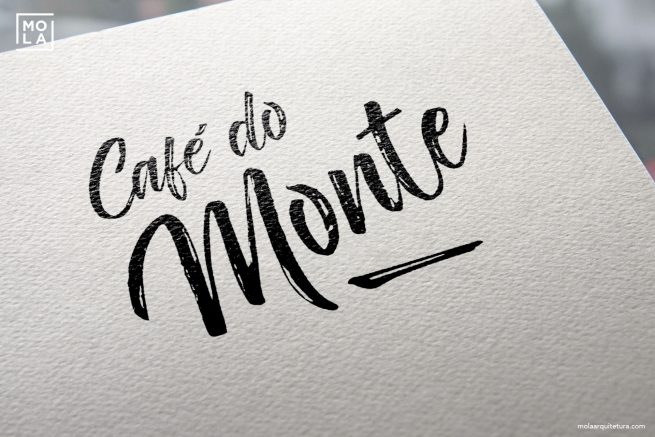 MO
LA
Café do
Monte
molaarquitetura.com